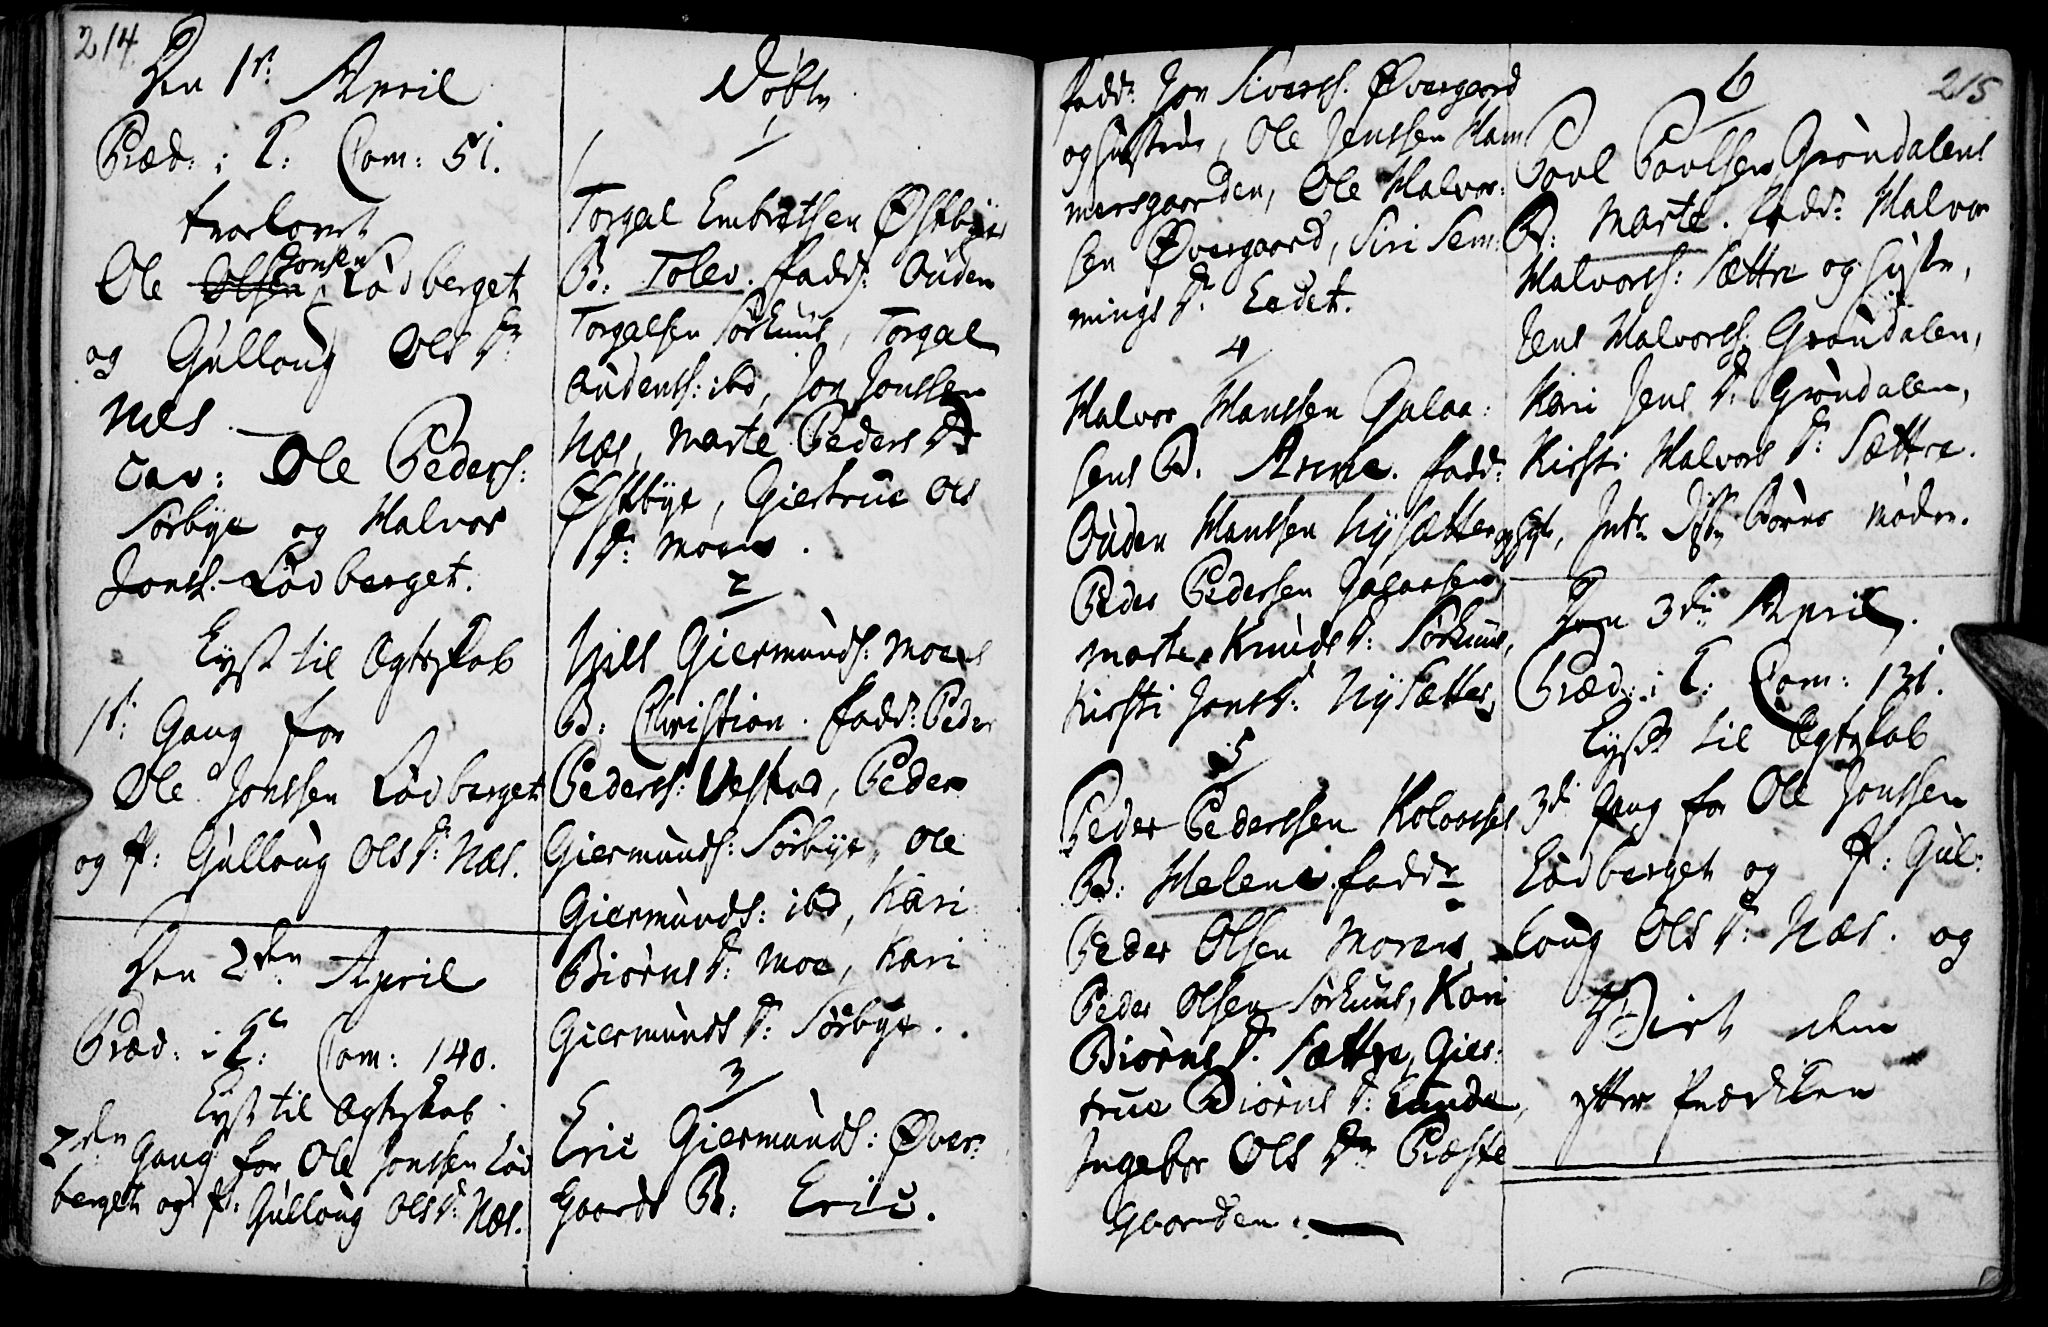 214
Den 1ste April
Præd: i T: Com: 51.
trorlovet
Jonsen
Ole Olsen Lødberget
og Gulloug Ols Dr
Næs.
Cav: Ole Peders:
Sörbye og Halvor
Jonss. Lödberget.
Lyst til Ægteskab
1ste Gang for
Ole Jonssen Lödberget
og P: Gulloug Ols Dr: Næs.
Den 2den April
Præd: i T: Com: 140.
Lyst til Ægteskab
2den Gang for Ole Jonssen Löd
berget og P: Gulloug Ols Dr: Næs.
Döbte
1
Torgal Embretsen Østbyes
B: Tolev. fadd: Ouden
Torgalsen Sörhuus, Torgal
Oudenss: ibd, Jon Jonssen
Næs, Marte Peders Dr
Østbye, Giertrue Ols
Dr: Moens.
2
Niels Giermunds: Moens
B: Christian. fadd: Peder
Pederss: Vestad, Peder
Giermunds: Sörbye, Ole
Giermunds: ibd, Kari
Biörns Dr: Moe, Kari
Giermunds Dr: Sörbye.
3
Eric Giermunds: Øver-
Gaards B: Eric.
fadd: Jon Siverss. Øvergaard
og Hustrue, Ole Jenssen Ham
mersgaarden, Ole Halvor-
sen Øvergaard, Siri Sem-
mings Dr: Eedet.
4
Halvor Hanssen Galaa-
sens B. Arne. fadd:
Ouden Hanssen Nysætter og Hust,
Peder Pedersen Galaasen,
Marte Knuds Dr: Sörhuus,
Kirsti Jons Dr: Nysætter
5
Peder Pederssen Kolosses
B: Helene. fadd:
Peder Olsen Moren,
Peder Olsen Sörhuus, Kari
Biörns Dr. Sættre, Gier-
true Biörns Dr: Lunde,
Ingebor Ols Dr Præste
Gaarden.
215
6
Povl Povlsen Gröndalens
B: Marte. Fadd: Halvor
Halvorss: Sættre og Hust,
Jens Halvorss: Gröndalen,
Kari Jens Dr: Gröndalen,
Kirsti Halvors Dr: Sættre.
Intr. Disse Börns Mödre.
Den 3die April.
Præd: i T: Com: 131.
Lyst til Ægteskab
3die Gang for Ole Jonssen
Lödberget og P: Gul-
loug Ols Dr: Næs. og
Viet dem
efter Prædiken